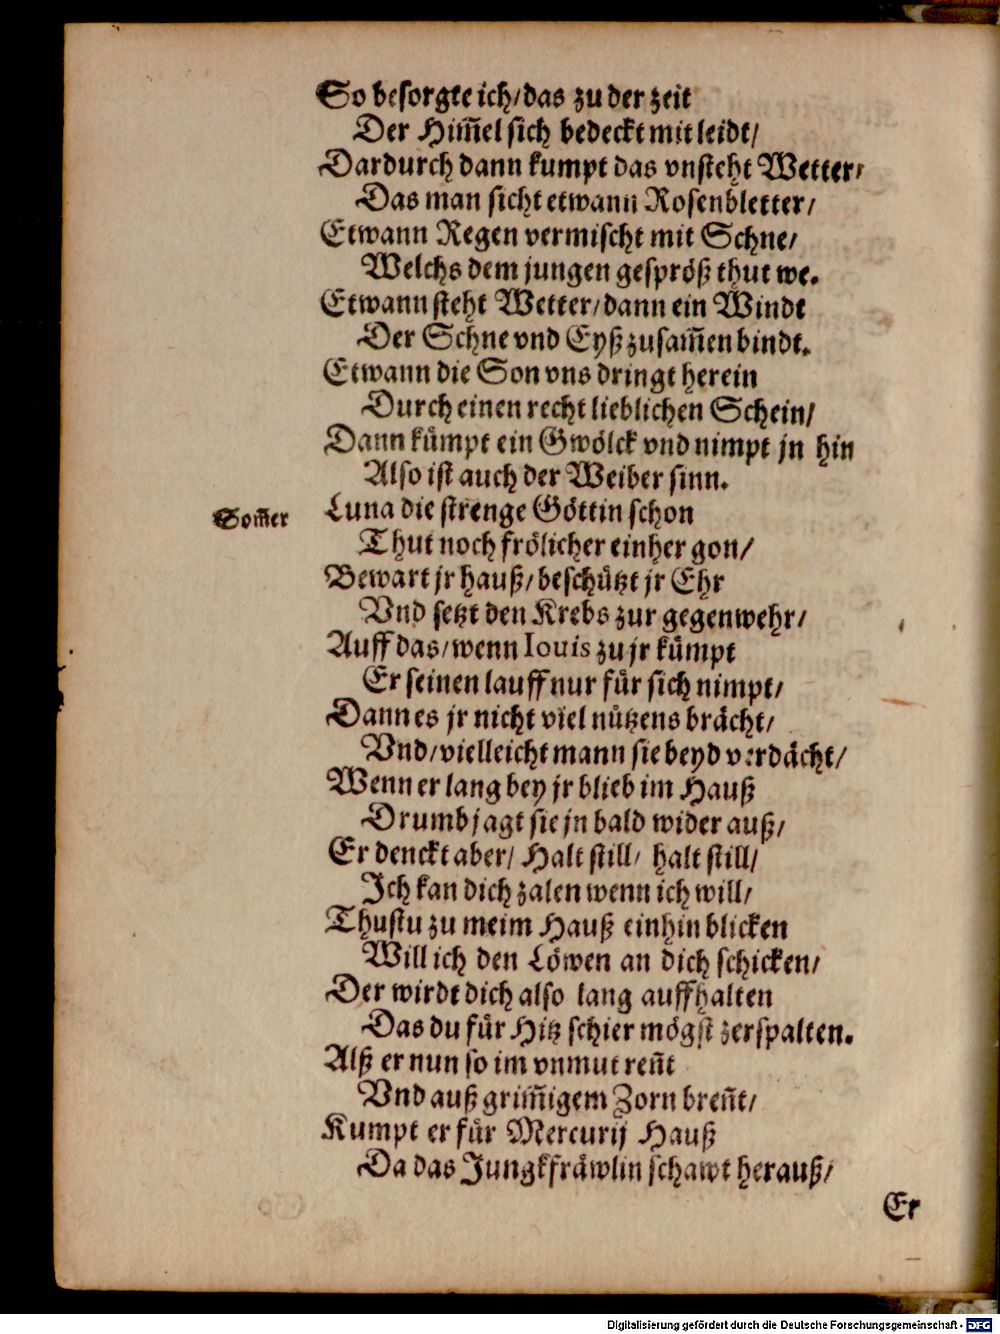 So besorgte ich/ das zu der zeit
Der Him̃el sich bedeckt mit leidt/
Dardurch dann kumpt das vnsteht Wetter/
Das man sicht etwann Rosenbletter/
Etwann Regen vermischt mit Schne/
Welchs dem jungen gespröß thut we.
Etwann steht Wetter/ dann ein Windt
Der Schne vnd Eyß zusam̃en bindt.
Etwann die Son vns dringt herein
Durch einen recht lieblichen Schein/
Dann kümpt ein Gwölck vnd nimpt jn hin
Also ist auch der Weiber sinn.
Som̃er
Luna die strenge Göttin schon
Thut noch frölicher einher gon/
Bewart jr hauß/ beschützt jr Ehr
Vnd setzt den Krebs zur gegenwehr/
Auff das/ wenn Iouis zu jr kümpt
Er seinen lauff nur für sich nimpt/
Dann es jr nicht viel nützens brächt/
Vnd/ vielleicht mann sie beyd verdächt/
Wenn er lang bey jr blieb im Hauß
Drumb jagt sie jn bald wider auß/
Er denckt aber/ Halt still/ halt still/
Ich kan dich zalen wenn ich will/
Thustu zu meim Hauß einhin blicken
Will ich den Löwen an dich schicken/
Der wirdt dich also lang auffhalten
Das du für Hitz schier mögst zerspalten.
Alß er nun so im vnmut reñt
Vnd auß grim̃igem Zorn breñt/
Kumpt er für Mercurij Hauß
Da das Jungkfräwlin schawt herauß/
Er
Digitalisierung gefördert durch die Deutsche Forschungsgemeinschaft - DFG